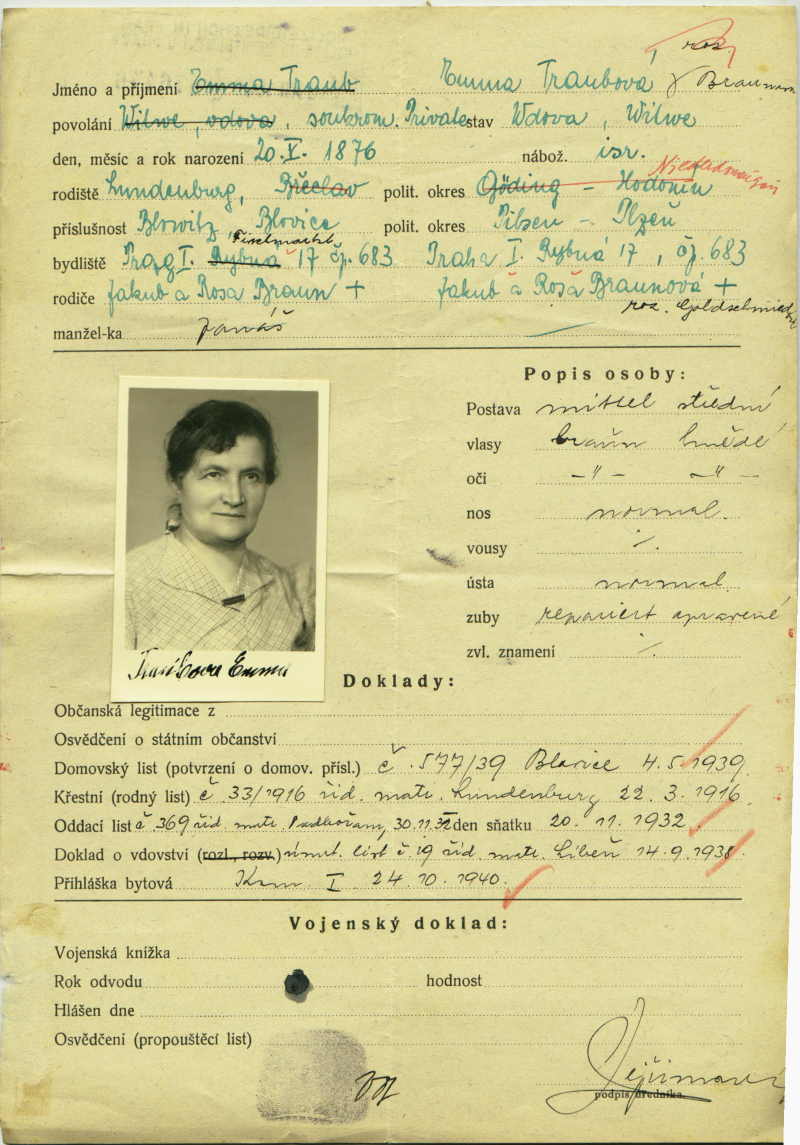 roz.
Jméno a příjmení Emma Traub Emma Traubová, Braunová
povolání Witwe, vdova, soukrom. Private stav Vdova, Witwe
den, měsíc a rok narození 20. V. 1876 nábož. isr.
rodiště Lundenburg, Břeclav polit. okres Göding - Hodonín
příslušnost Blowitz, Blovice polit. okres Pilsen - Plzeň
bydliště Prag I. Rybná 17 čp. 683 Praha I. Rybná 17, čp. 683
rodiče Jakub a Rosa Braun + Jakub a Rosa Braunová +
roz. Goldschmied
manžel-ka Jonáš
Popis osoby:
Postava mittel střední
vlasy braun hnědé
oči -"- -"-
nos normal.
vousy ./.
ústa normal
zuby repariert opravené
zvl. znamení ./.
Traubova Emma
Doklady:
Občanská legitimace z
Osvědčení o státním občanství
Domovský list (potvrzení o domov. přísl.) č. 577/39 Blovice 4. 5. 1939
Křestní (rodný list) č 33/1916 žid. matr. Lundenburg 22. 3. 1916
Oddací list č 369 žid. matr. Podbořany 30. 11. 32 den sňatku 20. 11. 1932
Doklad o vdovství (rozl., rozv.) úmrt. list č. 19 žid. matr. Libeň 14. 9. 1938.
Přihláška bytová Kom. I 24. 10. 1940.
Vojenský doklad:
Vojenská knížka
Rok odvodu hodnost
Hlášen dne
Osvědčení (propouštěcí list)
podpis úředníka.